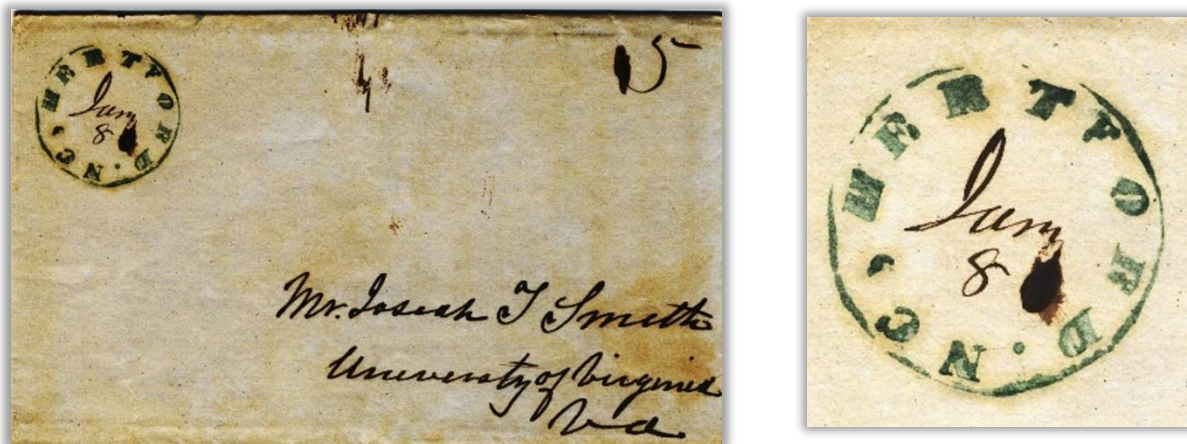 HERTFORD. NC.
Jany
8
5
Mr. Josiah T Smith
University of Virginia
Va
HERTFORD. NC.
Jany
8